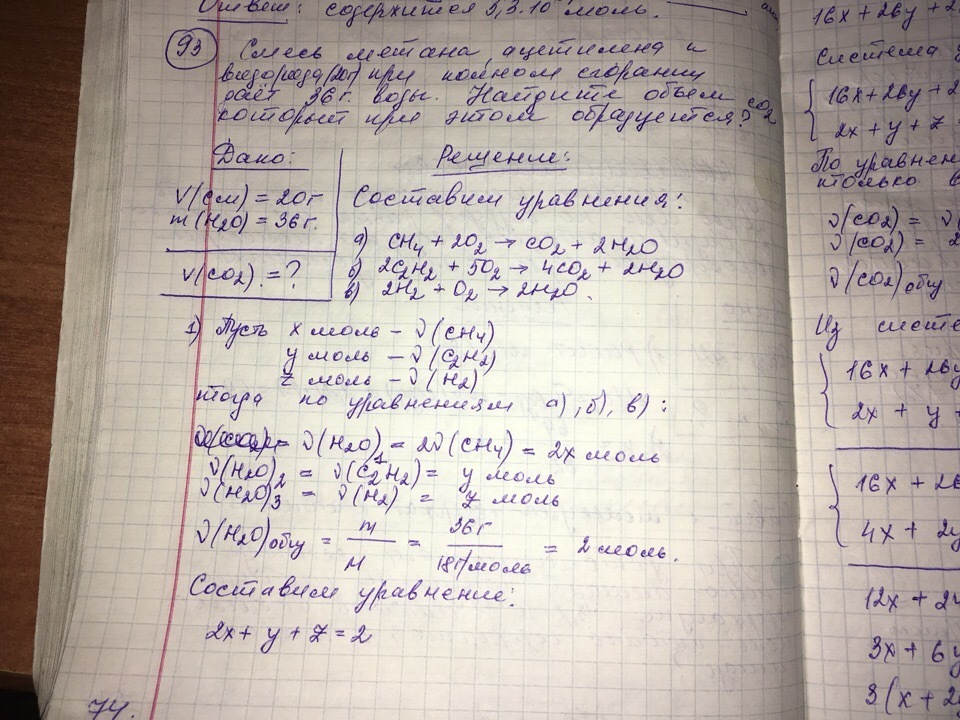 Ответ: содержится 3,3·10 моль.
93 Смесь метана, ацетилена и
водорода (20г) при полном сгорании
даёт 36 г. воды. Найдите объем CO2
который при этом образуется?
Дано:
V(см) = 20г
m(H2O) = 36г.
V(CO2) = ?
Решение:
Составим уравнения:
а) CH4 + 2O2 → CO2 + 2H2O
б) 2C2H2 + 5O2 → 4CO2 + 2H2O
в) 2H2 + O2 → 2H2O.
1) Пусть x моль – ν(CH4)
y моль – ν(C2H2)
z моль – ν(H2)
тогда по уравнениям а), б), в):
ν(H2O)1 = 2ν(CH4) = 2x моль
ν(H2O)2 = ν(C2H2) = y моль
ν(H2O)3 = ν(H2) = z моль
ν(H2O)общ = m/M = 36г/18г/моль = 2 моль.
Составим уравнение:
2x + y + z = 2
74.
16x + 26y + 2
Система у
16x + 26y + 2
2x + y + z =
По уравнен
только в
ν(CO2) = ν(
ν(CO2) = 2
ν(CO2)общ
Из систе
16x + 26y
2x + y +
16x + 26
4x + 2y
12x + 24
3x + 6y
3(x + 2y